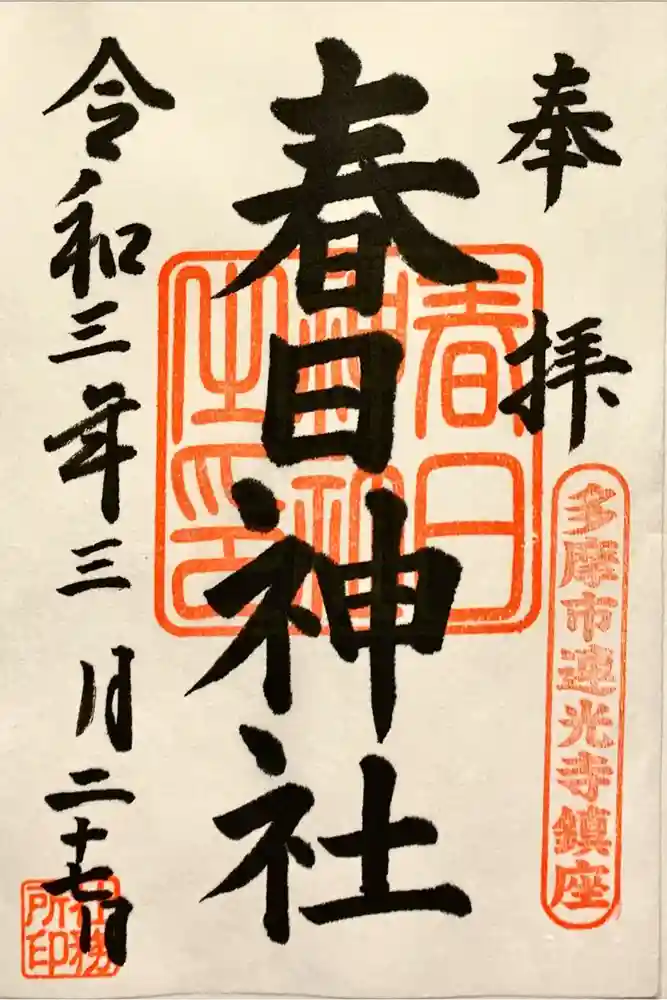 奉拝
多摩市連光寺鎮座
春日神社
春日
神社
之印
令和三年三月二十七日
社務
所印